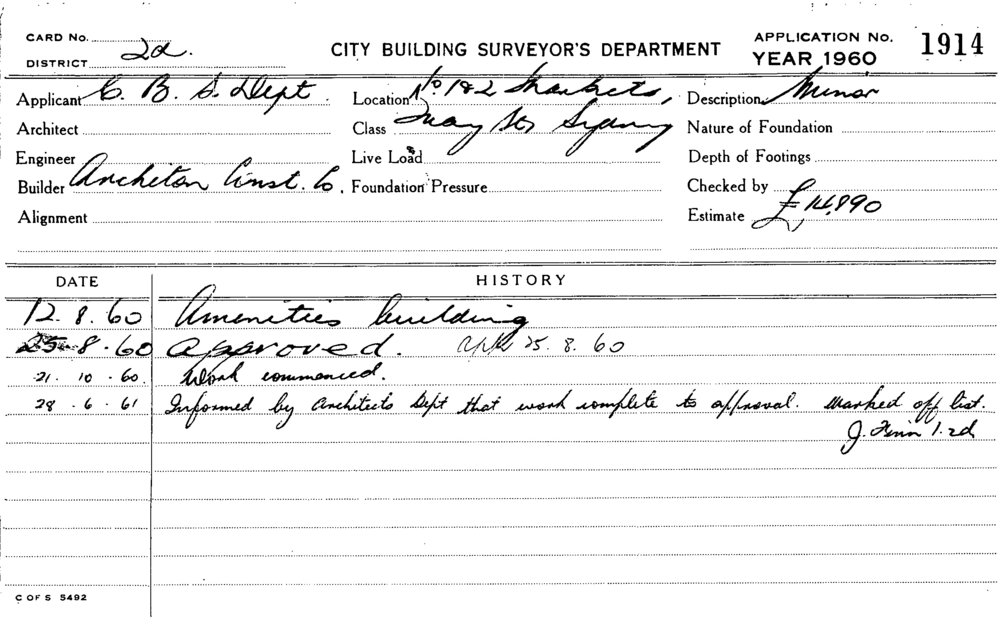 CARD No.
DISTRICT 2d.
CITY BUILDING SURVEYOR'S DEPARTMENT
APPLICATION No. 1914
YEAR 1960
Applicant C. B. S. Dept. Location No 1&2 Markets, Description Minor
Architect Class Hay St Sydney Nature of Foundation
Engineer Live Load Depth of Footings
Builder Architon Const. Co. Foundation Pressure Checked by
Alignment Estimate £14,890
DATE HISTORY
12.8.60 Amenities building
25.8.60 approved. 25.8.60
21.10.60. Work commenced.
28.6.61 Informed by Architects Dept that work complete to approval. Marked off list.
J. 2d
C OF S 5492